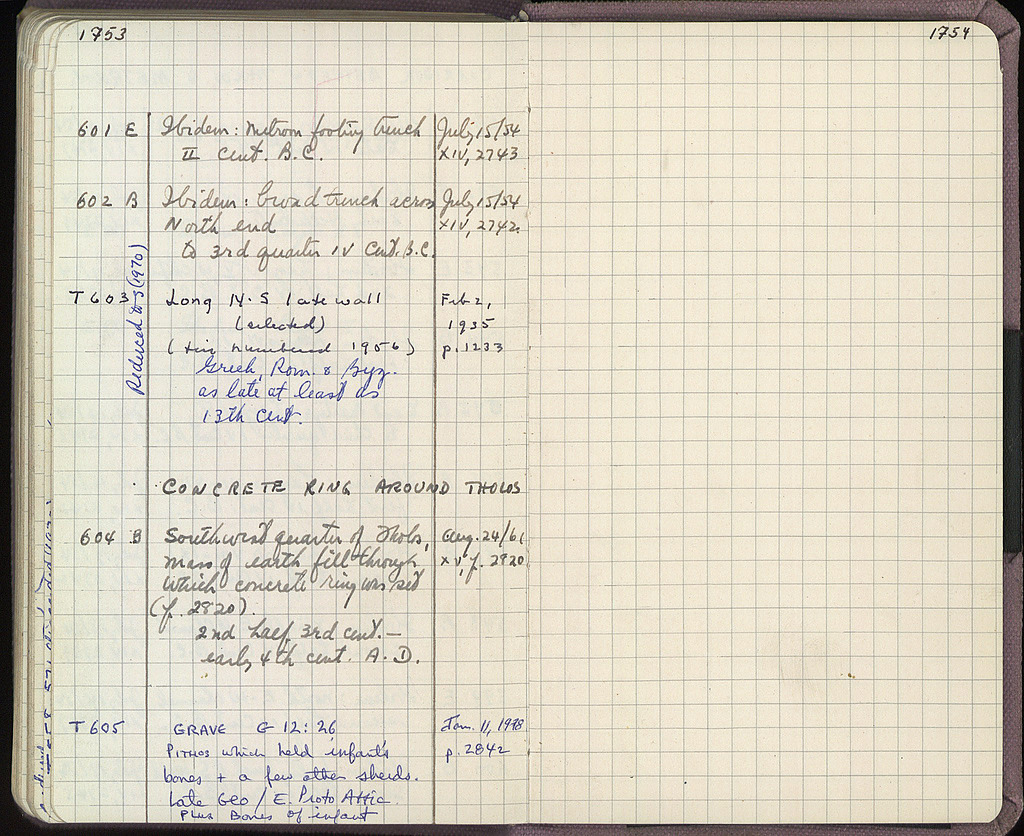 1753
1754
601 E Ibidem: Metroon footing trench July 15/54
II cent. B.C. XIV, 2743
602 B Ibidem: broad trench across July 15/54
North end XIV, 2742
to 3rd quarter IV cent. B.C.
Reduced to S (1970)
T 603 Long N-S late wall Feb 2,
(selected) 1935
(tins numbered 1956) p. 1233
Greek, Rom. & Byz.
as late at least as
13th cent.
CONCRETE RING AROUND THOLOS
604 B Southwest quarter of Tholos, Aug. 24/61
mass of earth fill through XV, p. 2820
which concrete ring was set
(p. 2820).
2nd half 3rd cent. –
early 4th cent. A.D.
T 605 GRAVE G 12:26 Jan. 11, 1998
PITHOS which held infant's p. 2842
bones + a few other sherds.
Late Geo / E. Proto Attic
Plus Bones of infant